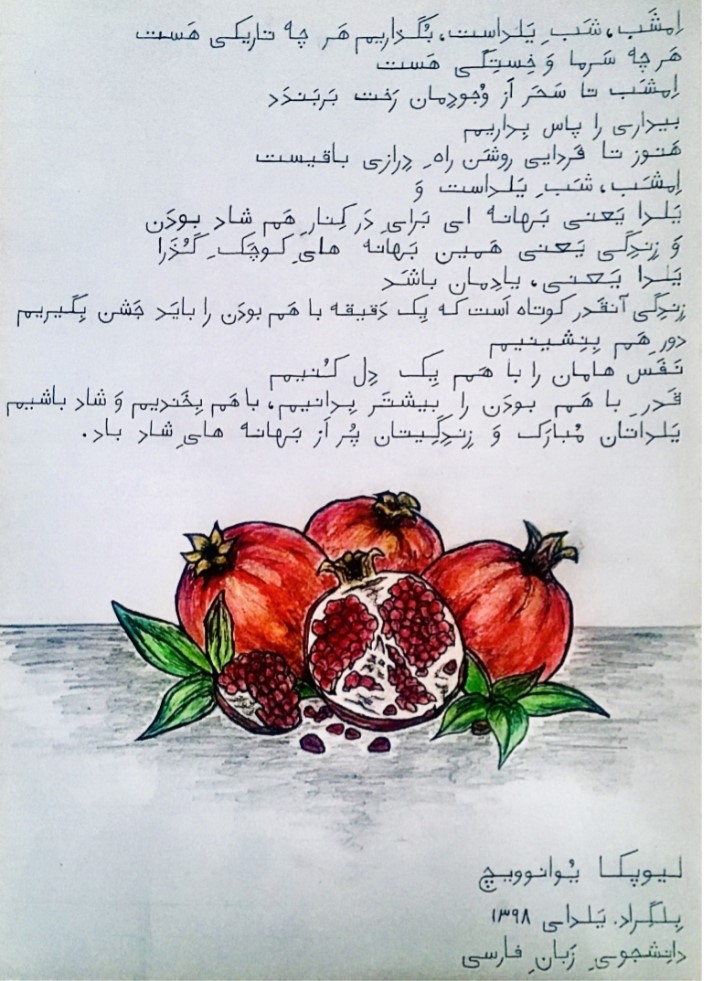 اِمشَب، شَبِ یَلداست، بُگذاریم هَر چه تاریکی هَست
هَر چه سَرما وَ خِستِگی هَست
اِمشَب تا سَحَر اَز وُجودِمان رَخت بَربَندَد
بیداری را پاس بِداریم
هَنوز تا فَردایی روشَن راهِ دِرازی باقیست
اِمشَب، شَبِ یَلداست وَ
یَلدا یَعنی بَهانه ای بَرایِ دَر کِنارِ هَم شاد بودَن
وَ زِندِگی یَعنی هَمین بَهانه هایِ کوچَکِ گُذَرا
یَلدا یَعنی، یادِمان باشَد
زِندِگی آنقَدر کوتاه اَست که یِک دَقیقه با هَم بودَن را بایَد جَشن بِگیریم
دورِ هَم بِنِشینیم
نَفَس هامان را با هَم یِک دِل کُنیم
قَدرِ با هَم بودَن را بیشتَر بِدانیم، با هَم بِخَندیم وَ شاد باشیم
یَلداتان مُبارَک وَ زِندِگیتان پُر اَز بَهانه هایِ شاد باد.
لیوپکا یُوانوویچ
بِلگِراد. یَلدای ۱۳۹۸
دانِشجویِ زَبانِ فارسی